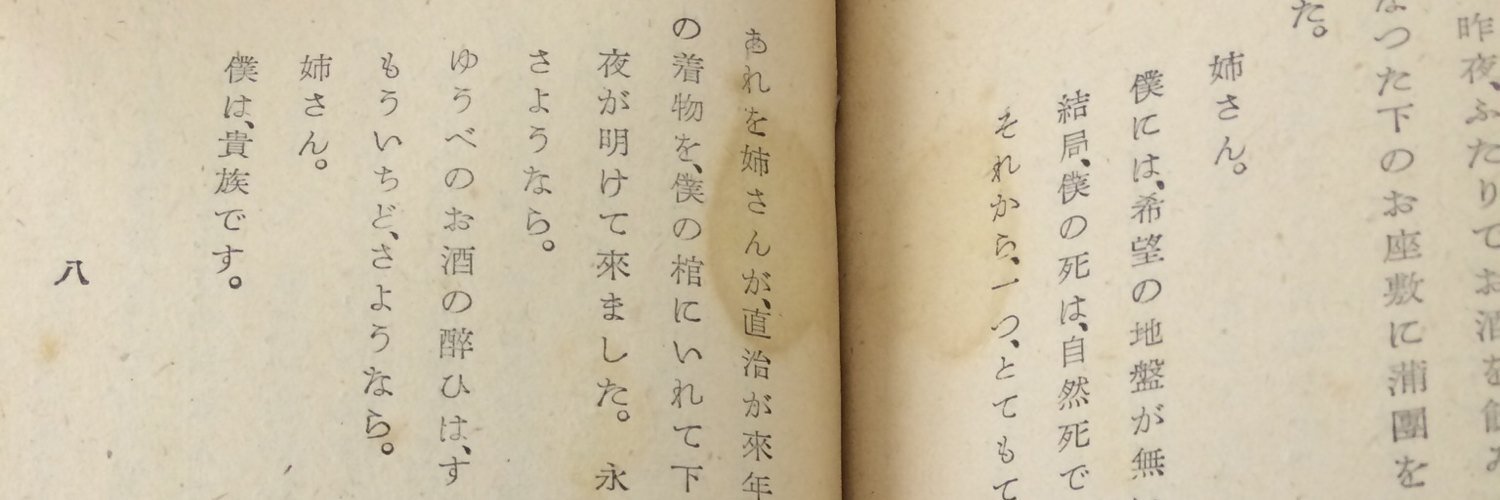 昨夜、ふたりでお酒を飮み
なつた下のお座敷に蒲團を
た。
姉さん。
僕には、希望の地盤が無
結局、僕の死は、自然死で
それから、一つ、とてもて
あれを姉さんが、直治が來年
の着物を、僕の棺にいれて下
夜が明けて來ました。 永
さようなら。
ゆうべのお酒の醉ひは、す
もういちど、さようなら。
姉さん。
僕は、貴族です。
八